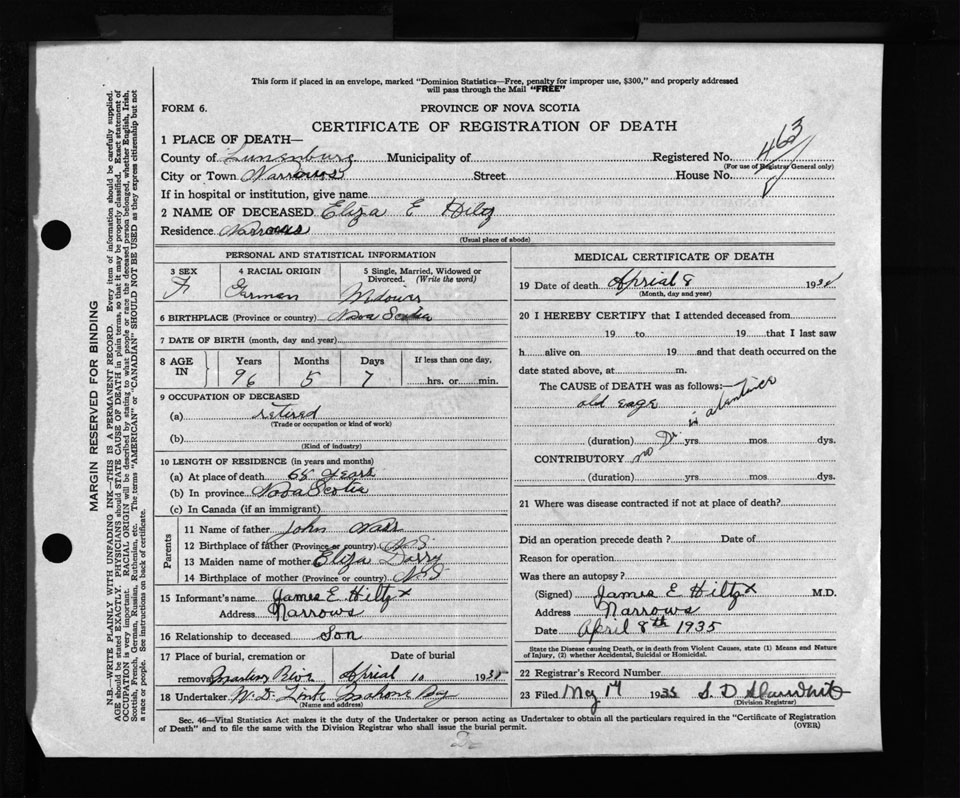 This form if placed in an envelope, marked "Dominion Statistics—Free, penalty for improper use, $300," and properly addressed
will pass through the Mail "FREE"
FORM 6.
PROVINCE OF NOVA SCOTIA
CERTIFICATE OF REGISTRATION OF DEATH
1 PLACE OF DEATH—
County of Lunenburg Municipality of Registered No. 463
(For use of Registrar General only)
City or Town Narrows Street House No.
If in hospital or institution, give name
2 NAME OF DECEASED Eliza E Hiltz
Residence Narrows
(Usual place of abode)
PERSONAL AND STATISTICAL INFORMATION
3 SEX 4 RACIAL ORIGIN 5 Single, Married, Widowed or
Divorced. (Write the word)
F German
6 BIRTHPLACE (Province or country) Nova Scotia
7 DATE OF BIRTH (month, day and year)
8 AGE IN Years Months Days If less than one day,
96 5 7 hrs. or min.
9 OCCUPATION OF DECEASED
(a) retired
(Trade or occupation or kind of work)
(b)
(Kind of industry)
10 LENGTH OF RESIDENCE (in years and months)
(a) At place of death 65 years
(b) In province Nova Scotia
(c) In Canada (if an immigrant)
Parents
11 Name of father John
12 Birthplace of father (Province or country) N.S.
13 Maiden name of mother Eliza
14 Birthplace of mother (Province or country) N.S
15 Informant's name James E Hiltz x
Address Narrows
16 Relationship to deceased Son
17 Place of burial, cremation or Date of burial
removal Aprial 10 1935
18 Undertaker Mahone Bay
(Name and address)
MEDICAL CERTIFICATE OF DEATH
19 Date of death Aprial 8 193
(Month, day and year)
20 I HEREBY CERTIFY that I attended deceased from
19 to 19 that I last saw
h alive on 19 and that death occurred on the
date stated above, at m.
The CAUSE of DEATH was as follows:
old eage
no Dr in atantince
(duration) yrs. mos. dys.
CONTRIBUTORY
(duration) yrs. mos. dys.
21 Where was disease contracted if not at place of death?
Did an operation precede death? Date of
Reason for operation
Was there an autopsy?
(Signed) James E Hiltz x M.D.
Address Narrows
Date April 8th 1935
State the Disease causing Death, or in death from Violent Causes, state (1) Means and Nature
of Injury, (2) whether Accidental, Suicidal or Homicidal.
22 Registrar's Record Number
23 Filed 1935 S. D
(Division Registrar)
Sec. 46—Vital Statistics Act makes it the duty of the Undertaker or person acting as Undertaker to obtain all the particulars required in the "Certificate of Registration
of Death" and to file the same with the Division Registrar who shall issue the burial permit. (OVER)
MARGIN RESERVED FOR BINDING
N.B.—WRITE PLAINLY WITH UNFADING INK—THIS IS A PERMANENT RECORD. Every item of information should be carefully supplied.
AGE should be stated EXACTLY. PHYSICIANS should STATE CAUSE OF DEATH in plain terms, so that it may be properly classified. Exact statement of
OCCUPATION is very important. RACIAL ORIGIN will be described by stating to what people or race the deceased person belonged, whether English, Irish,
Scottish, French, German, Russian, Ruthenian, etc. The terms "AMERICAN" or "CANADIAN" SHOULD NOT BE USED as they express citizenship but not
a race or people. See instructions on back of certificate.